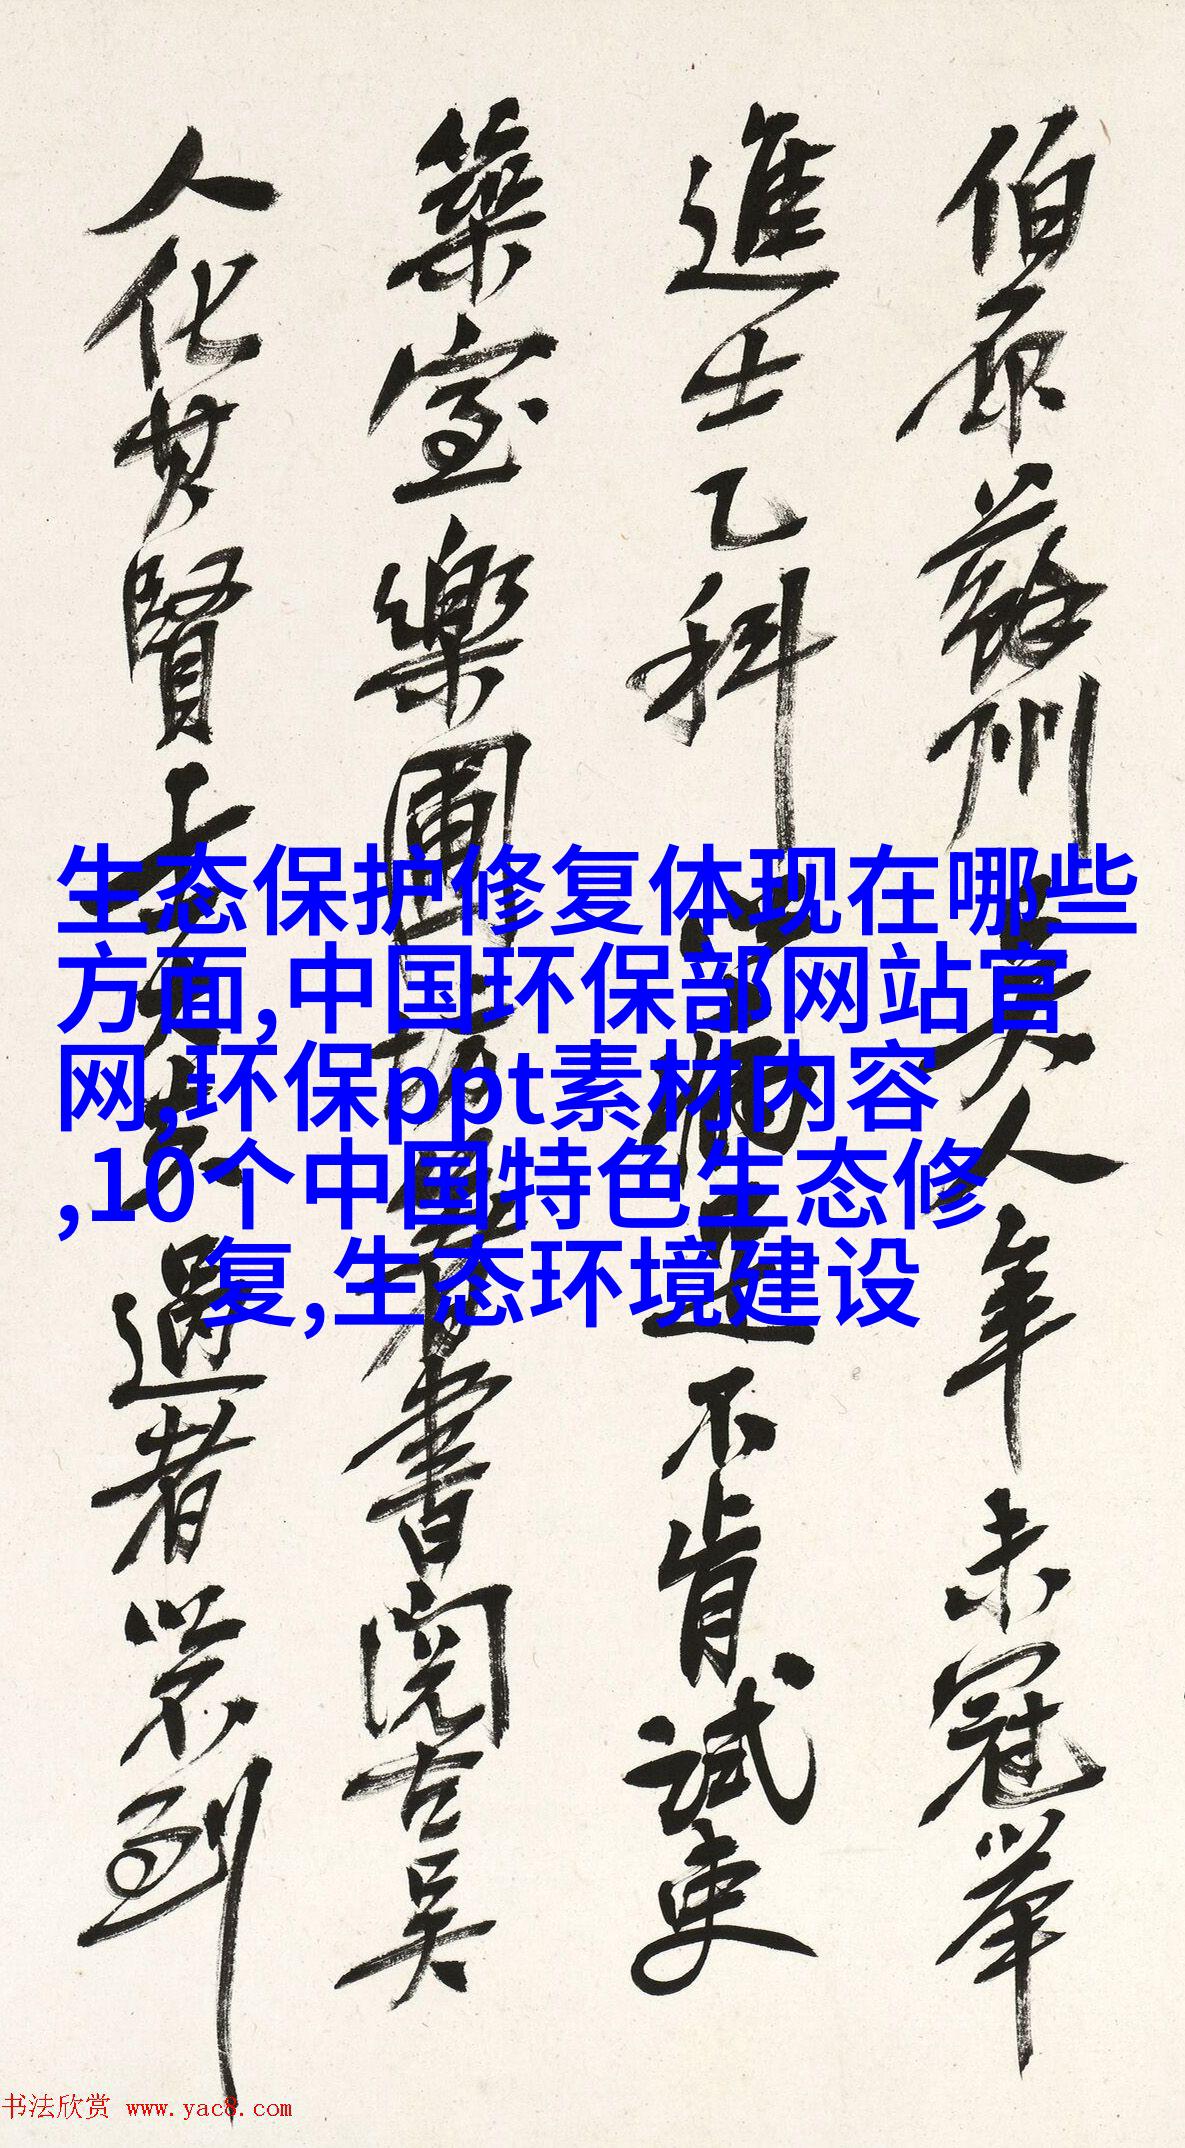 伯原蘇州吳人年未冠舉
進士乙科不肯試吏
築室樂圃著書閱古吳
人化其賢過者以不到
生态保护修复体现在哪些
方面,中国环保部网站官
网,环保ppt素材内容
,10个中国特色生态修
复,生态环境建设
书法欣赏 www.yac8.com